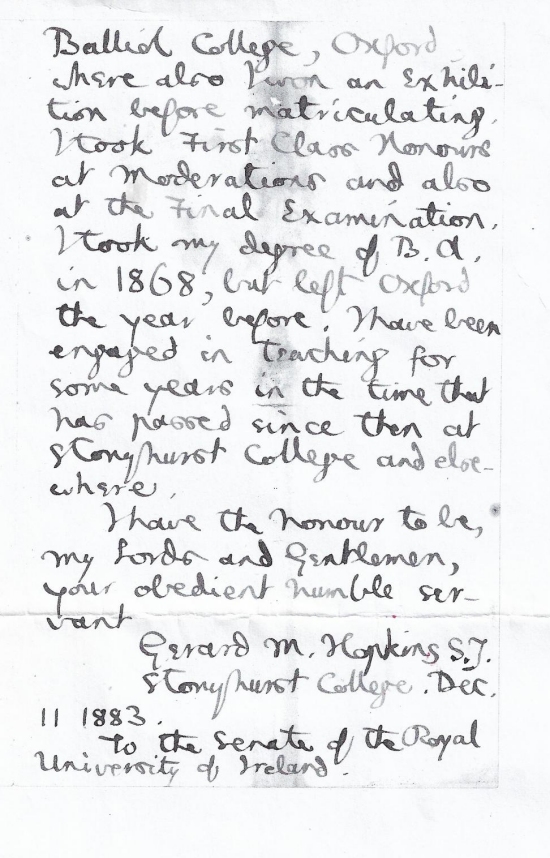 Balliol College, Oxford
where also I won an Exhibi-
tion before matriculating.
I took First Class Honours
at Moderations and also
at the Final Examination.
I took my degree of B. A.
in 1868, but left Oxford
the year before. I have been
engaged in teaching for
some years in the time that
has passed since then at
Stonyhurst College and else-
where.
I have the honour to be,
my Lords and Gentlemen,
your obedient humble ser-
vant
Gerard M. Hopkins S.J.
Stonyhurst College. Dec.
11 1883.
To the Senate of the Royal
University of Ireland.